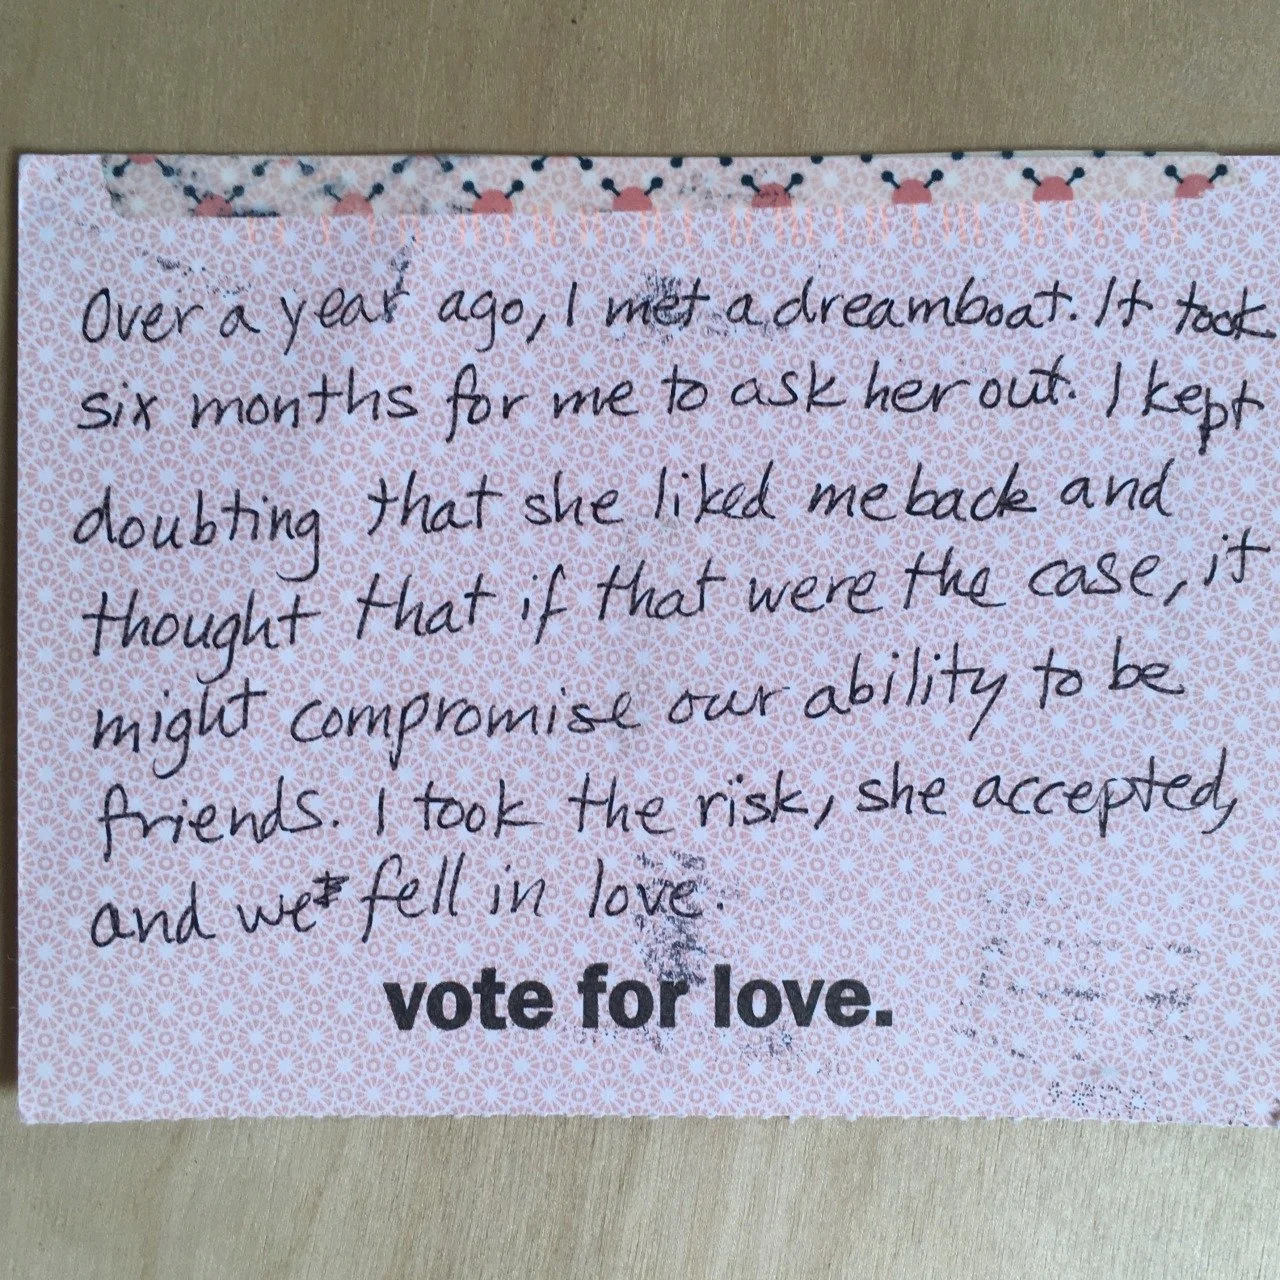 Over a year ago, I met a dreamboat. It took
six months for me to ask her out. I kept
doubting that she liked me back and
thought that if that were the case, it
might compromise our ability to be
friends. I took the risk, she accepted,
and we fell in love.
vote for love.